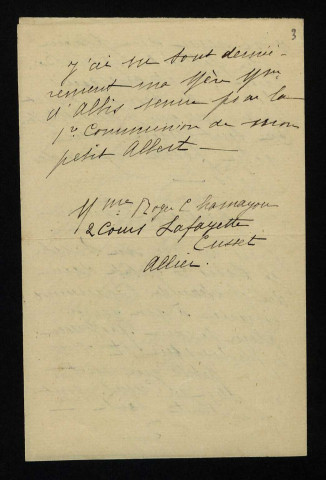 3
J'ai vu tout derniè-
rement ma Mère Mme
d'Albis venue pour la
1re Communion de mon
petit Albert —
Mme Roger
2 Cours Lafayette
Cusset
Allier.